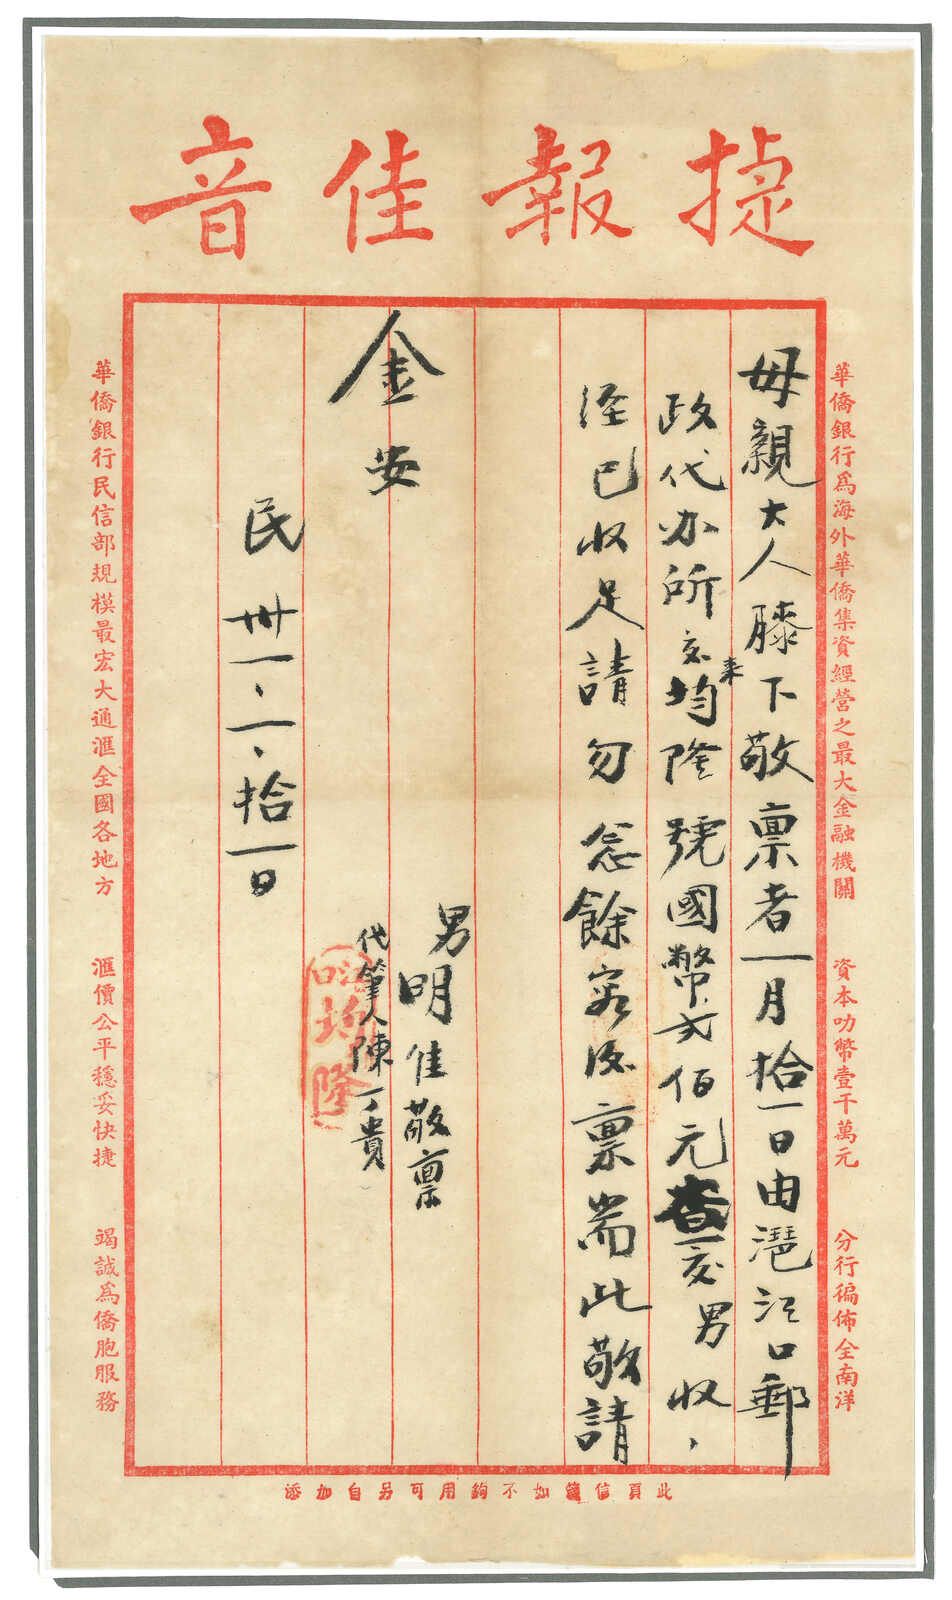 捷報佳音
華僑銀行爲海外華僑集資經營之最大金融機關 資本叻幣壹千萬元 分行徧佈全南洋
母親大人膝下敬禀者一月拾一日由灎江口郵
政代办所交來均隆號國幣弍佰元查交男收、
經已收足請勿念餘容后禀耑此敬請
金安
男明佳敬禀
代筆人陳丁貴
口 均隆
民卅一、一、拾一日
華僑銀行民信部規模最宏大通滙全國各地方 滙價公平穩妥快捷 竭誠爲僑胞服務
此頁信箋如不夠用可另自加添